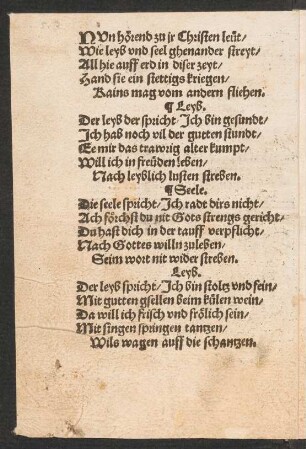 NUn hörend zu jr Christen leüt/
Wie leyb vnd seel ghenander streyt/
All hie auff erd in diser zeyt/
Hand sie ein stettigs kriegen/
Kains mag vom andern fliehen.
¶ Leyb.
Der leyb der spricht/ Ich bin gesundt/
Ich hab noch vil der gutten stundt/
Ee mir das trawrig alter kumpt/
Will ich in freüden leben/
Nach leyblich lusten streben.
¶ Seele.
Die seele spricht/ Ich radt dirs nicht/
Ach förchst du nit Gots strengs gericht/
Du hast dich in der tauff verpflicht/
Nach Gottes willn zuleben/
Seim wort nit wider streben.
Leyb.
Der leyb spricht/ Ich bin stoltz vnd fein/
Mit gutten gsellen beim külen wein/
Da will ich frisch vnd frölich sein/
Mit singen springen tantzen/
Wils wagen auff die schantzen.